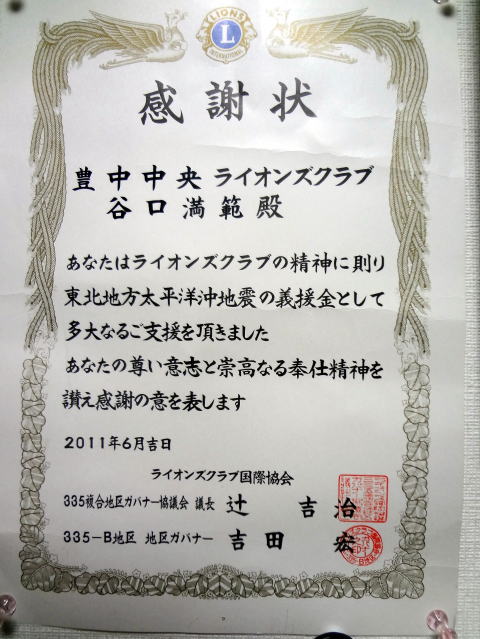 LIONS
L
INTERNATIONAL
感謝状
豊中中央ライオンズクラブ
谷口満範殿
あなたはライオンズクラブの精神に則り
東北地方太平洋沖地震の義援金として
多大なるご支援を頂きました
あなたの尊い意志と崇高なる奉仕精神を
讃え感謝の意を表します
2011年6月吉日
ライオンズクラブ国際協会
335複合地区ガバナー協議会 議長 辻 吉治
335-B地区 地区ガバナー 吉田 宏